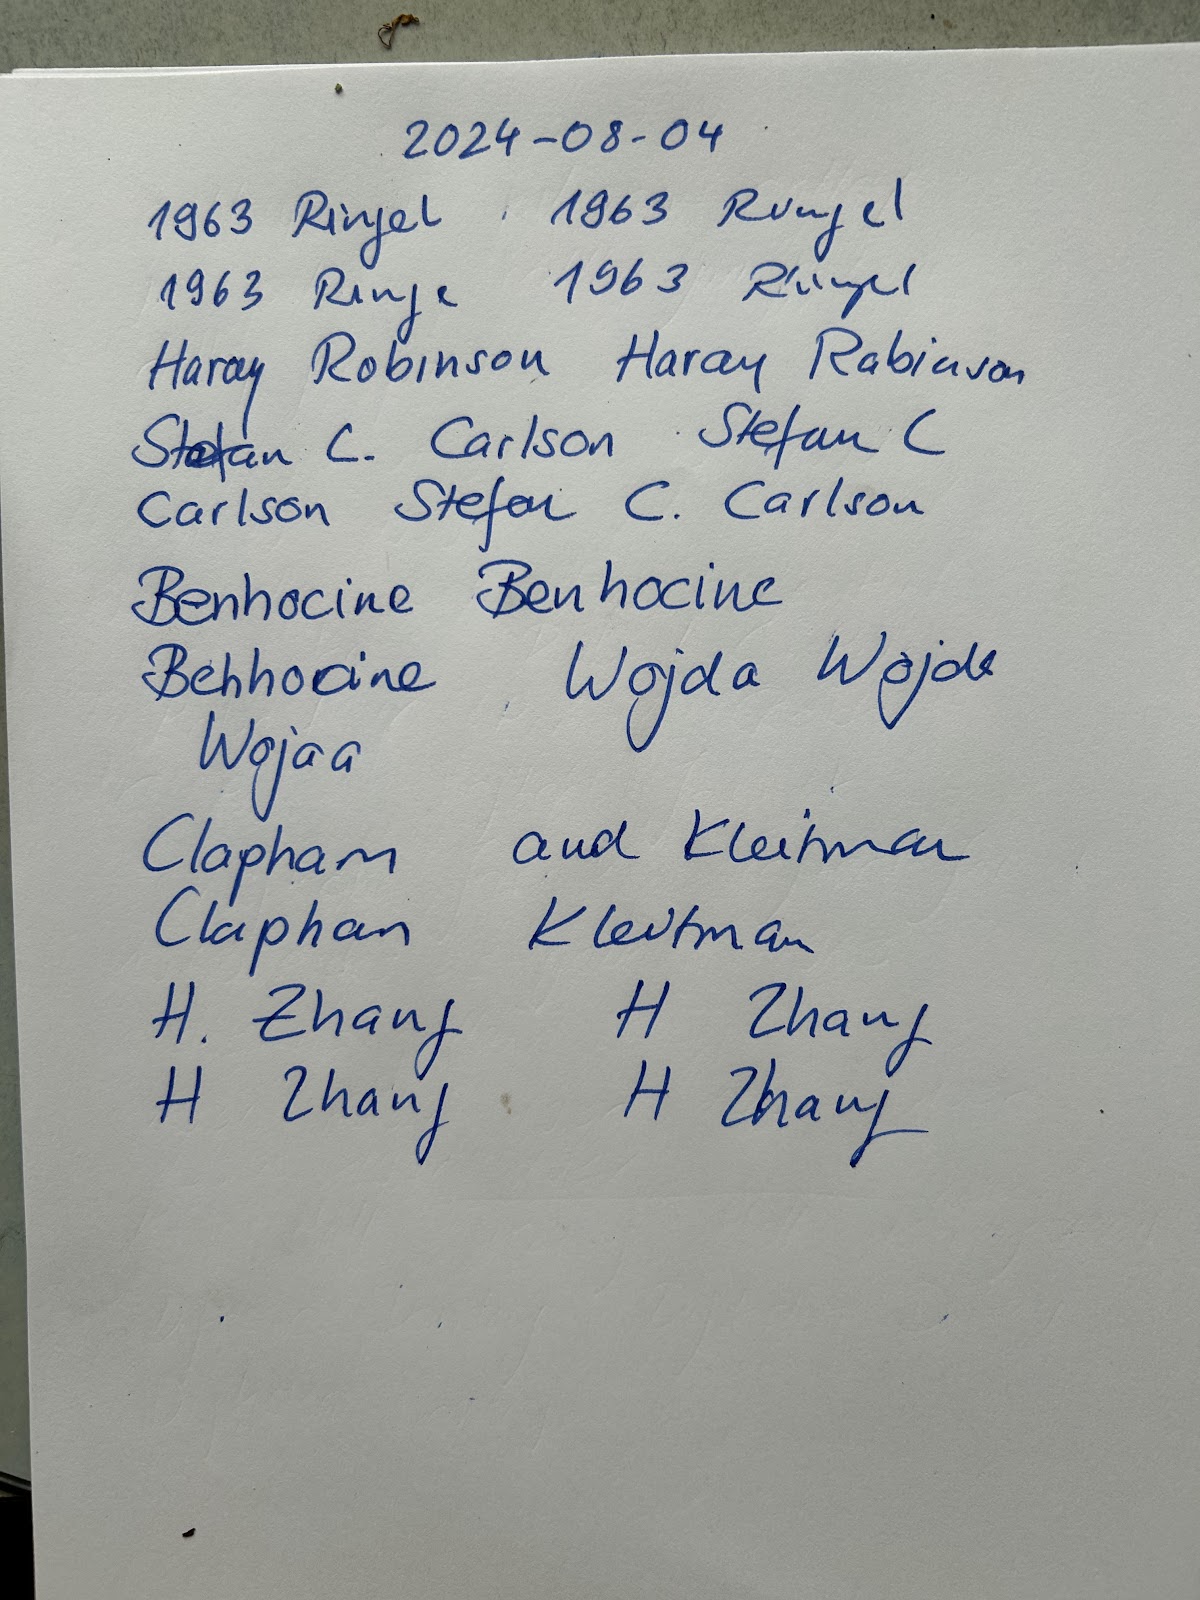 2024-08-04
1963 Ringel 1963 Ringel
1963 Ringe 1963 Ringel
Haray Robinson Haray Robinson
Stefan C. Carlson Stefan C
Carlson Stefan C. Carlson
Benhocine Benhocine
Benhocine Wojda Wojda
Wojda
Clapham and Kleitman
Clapham Kleitman
H. Zhang H Zhang
H Zhang H Zhang